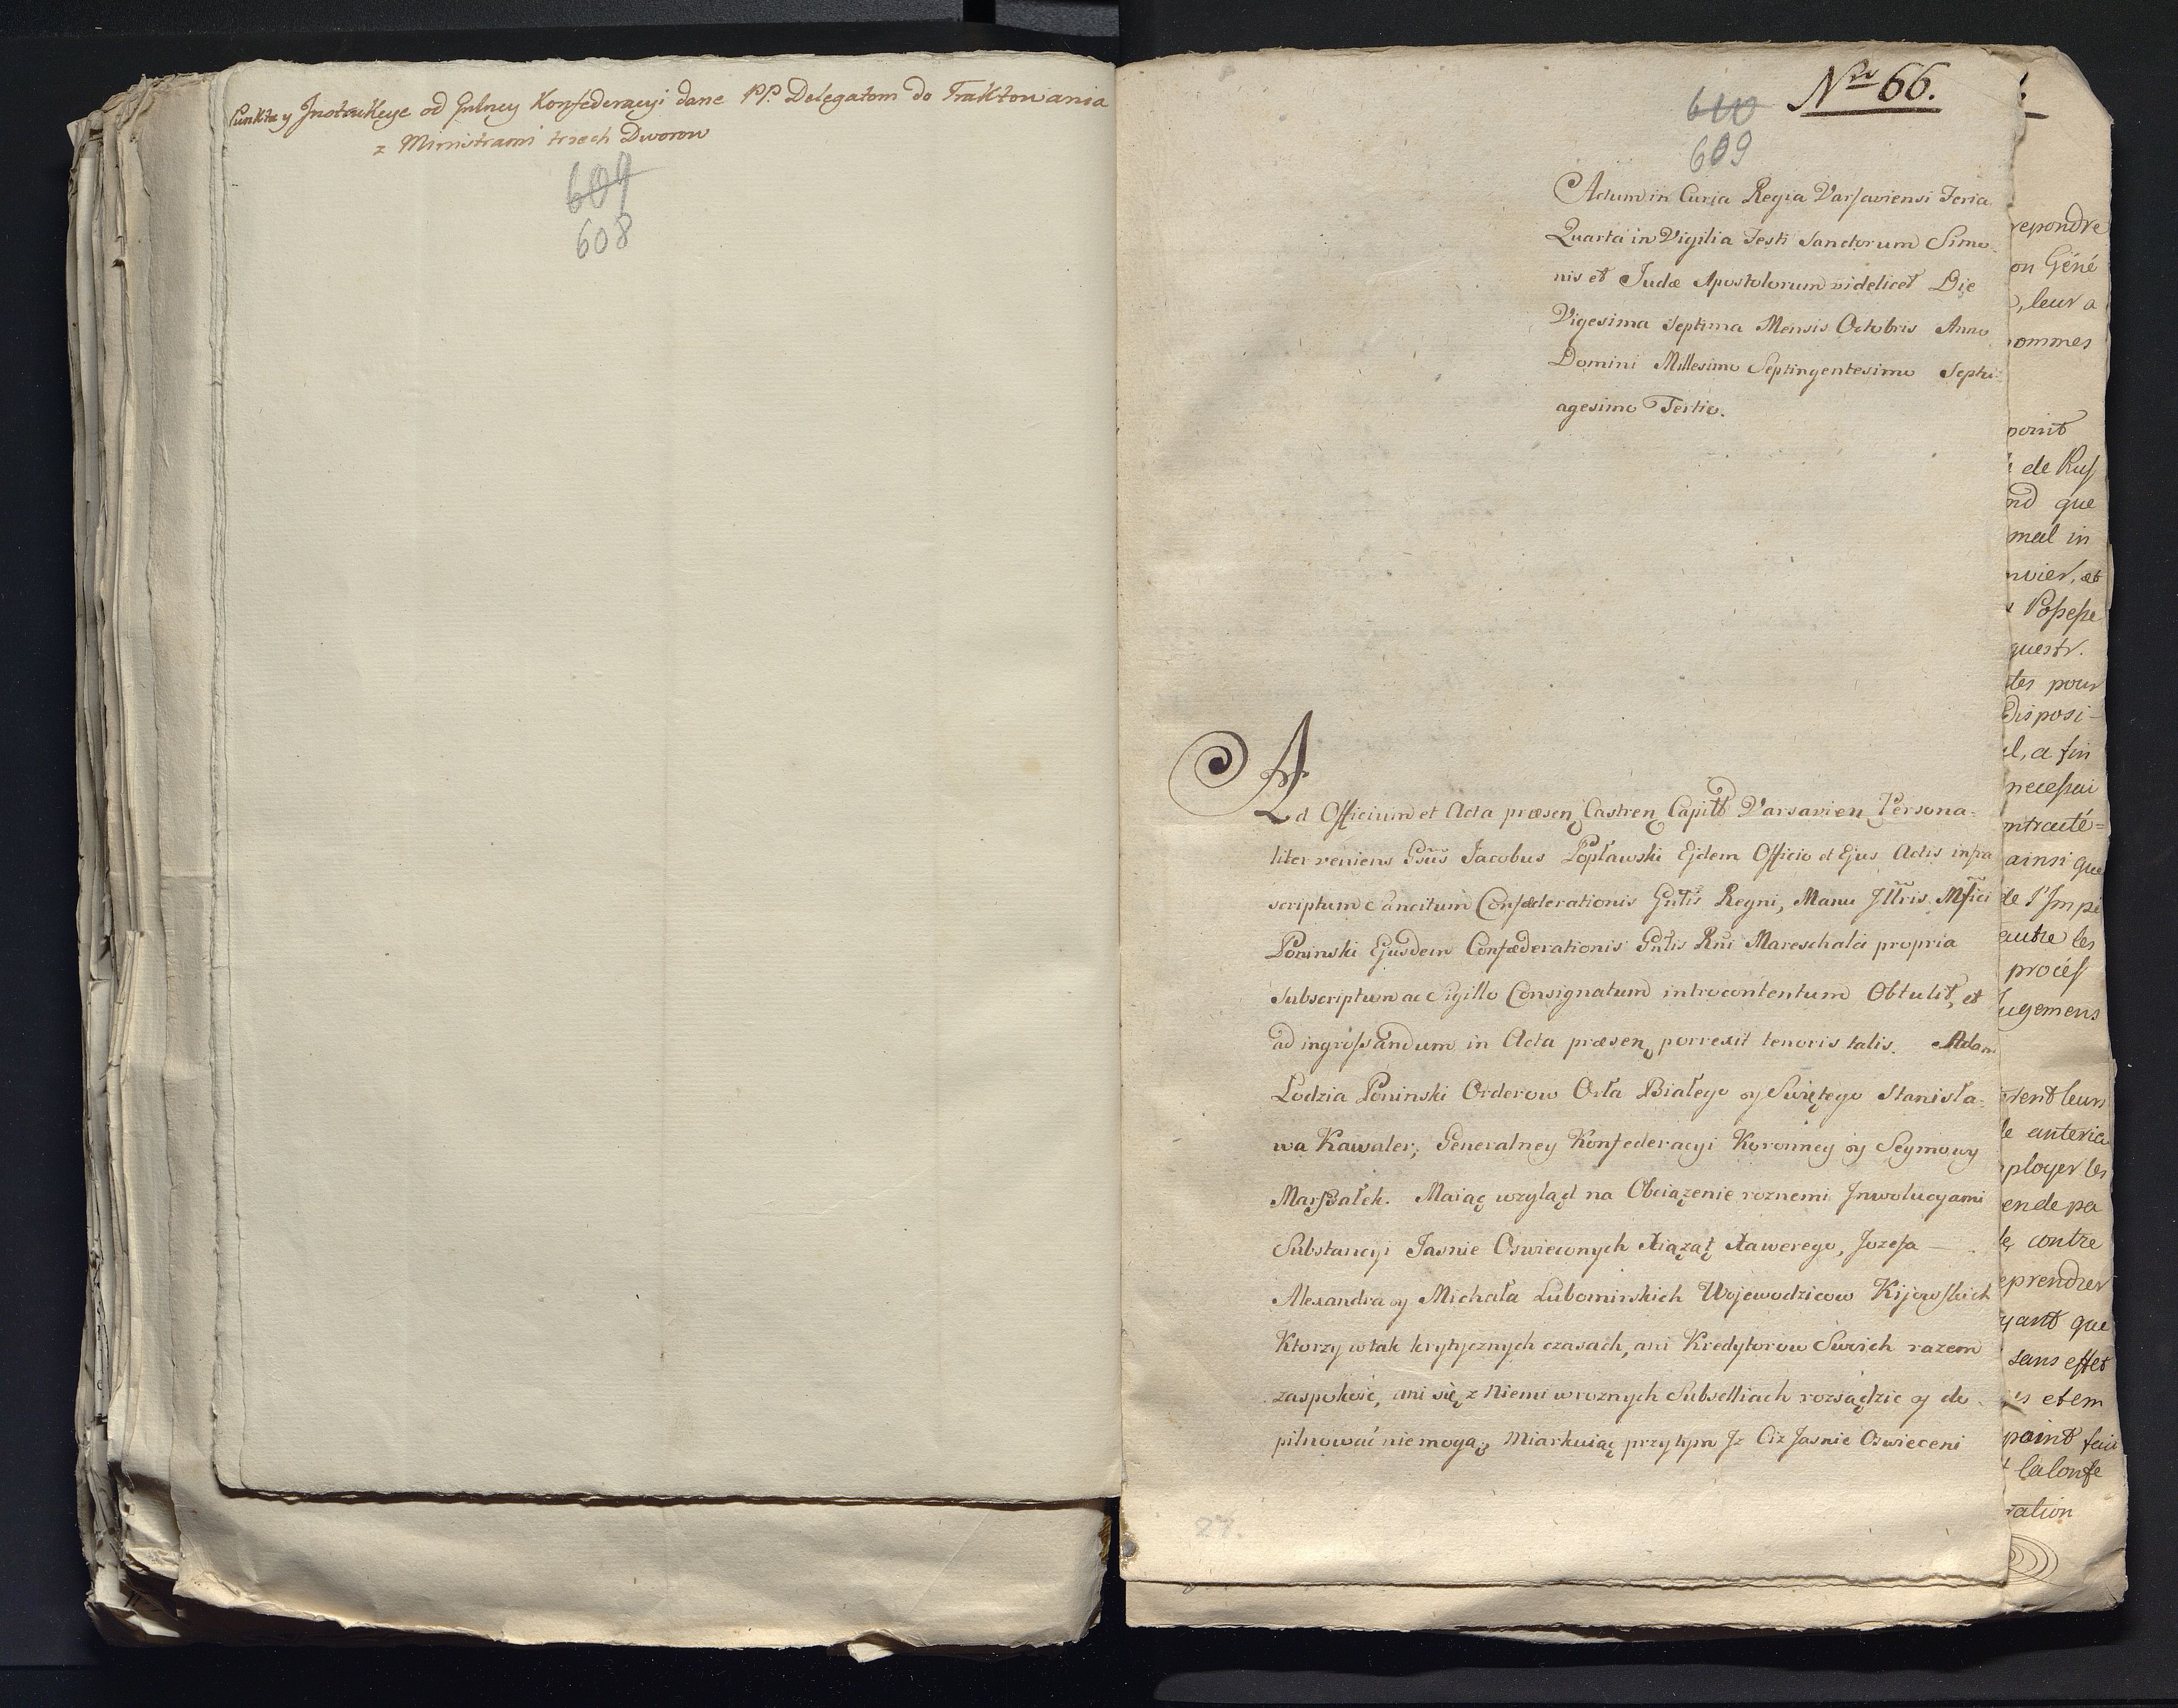 Punkta y Instrukcye od Gnlney Konfederacyi dane PP. Delegatom do Traktowania
z Ministrami trzech Dworow
609
608
Nro 66.
610
609
Actum in Curia Regia Varsaviensi Feria
Quarta in Vigilia Festi Sanctorum Simo-
nis et Judæ Apostolorum videlicet Die
Vigesima Septima Mensis Octobris Anno
Domini Millesimo Septingentesimo Septu-
agesimo Tertio.
Ad Officium et Acta præsen Castren Capitl Varsavien Persona-
liter veniens Gsus Jacobus Popławski Ejdem Officio et Ejus Actis infra
scriptum Sancitum Confæderationis Gnlis Regni, Manu Jllris Mfici
Poninski Ejusdem Confæderationis Gnlis Rni Mareschalci propria
Subscriptum ac Sigillo Consignatum introcontentum Obtulit, et
ad ingrossandum in Acta præsen porrexit tenoris talis. Adam
Lodzia Poninski Orderow Orła Białego y Swiętego Stanisła-
wa Kawaler, Generalney Konfederacyi Koronney y Seymowy
Marszałek. Maiąc wzgląd na Obciązenie roznemi Jnwolucyami
Substancyi Jasnie Oswieconych Xiąząt Xawerego, Jozefa
Alexandra y Michała Lubomirskich Wojewodzicow Kijowskich
Ktorzy w tak krytycznych czasach, ani Kredytorow Swoich razem
zaspokoic, ani się z Niemi w roznych Subselliach rozsądzic y do-
pilnować nie mogą; Miarkuiąc przytym Jz Ciz Jasnie Oswieceni
27.
repondre
on Géné
, leur a
ommes
point
de Rus
nd que
mal in
nvier, et
Possesse
questr.
tes pour
Disposi-
l, a fin
necessai
ntrauté=
ainsi que
de l'Impe
autre les
procès
Jugemens
tent leurs
le anteria
ployer les
en de pa
contre
eprendrer
yant que
sans effet
s et em
point fai
la Confe
ration